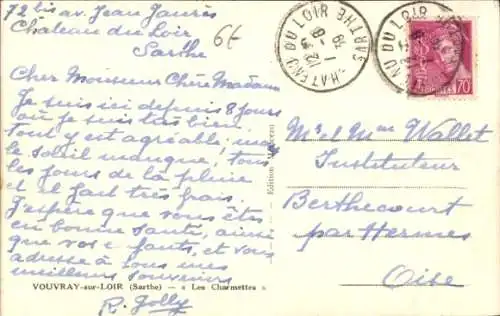 72 bis av. Jean Jaurès
Château du Loir
Sarthe
6f
Cher Monsieur Chère Madame
Je suis ici depuis 8 jours
où je suis très bien
tout y est agréable, mais
le soleil manque, tous
les jours de la pluie
et il fait très frais.
J'espère que vous êtes
en bonne santé, ainsi
que vos enfants, et vous
adresse à tous mes
meilleurs souvenirs
R. Jolly
VOUVRAY-sur-LOIR (Sarthe) — « Les Charmettes »
Edition
CHATEAU DU LOIR SARTHE
70
Mr et Mme Wallet
Instituteur
Berthecourt
par Hermes
Oise